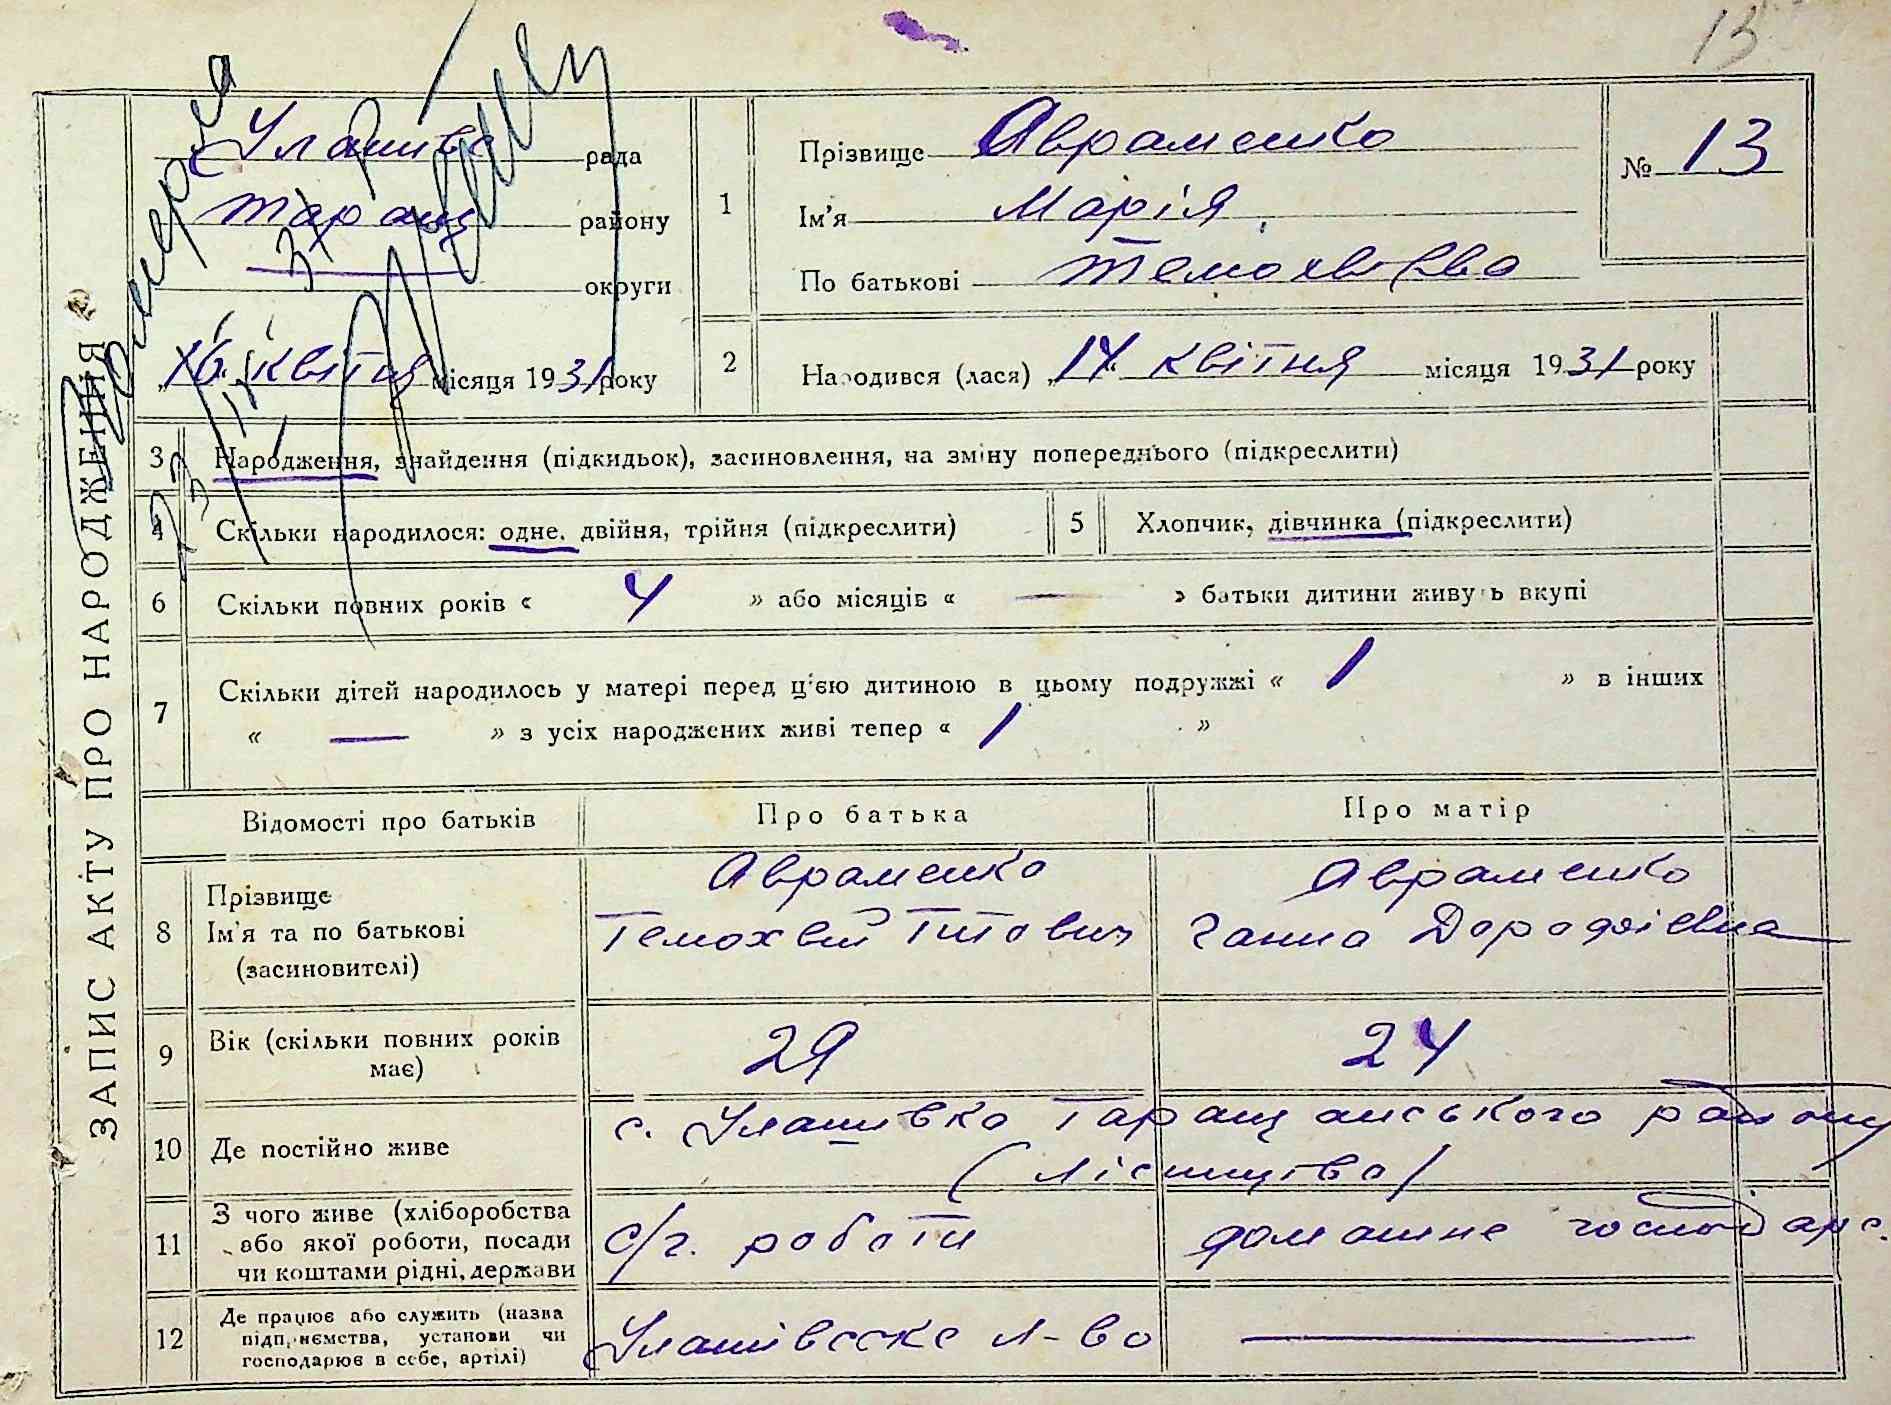 13
ЗАПИС АКТУ ПРО НАРОДЖЕННЯ
Улашівс рада
Таращ району
округи
„16“ квітня місяця 1931 року
1 Прізвище Авраменко
Ім'я Марія
По батькові Темохвієво
№ 13
2 Народився (лася) „14“ квітня місяця 1931 року
3 Народження, знайдення (підкидьок), засиновлення, на зміну попереднього (підкреслити)
4 Скільки народилося: одне, двійня, трійня (підкреслити) 5 Хлопчик, дівчинка (підкреслити)
6 Скільки повних років « 4 » або місяців « — » батьки дитини живуть вкупі
7 Скільки дітей народилось у матері перед ц'єю дитиною в цьому подружжі « 1 » в інших
« — » з усіх народжених живі тепер « 1 »
Відомості про батьків Про батька Про матір
8 Прізвище
Ім'я та по батькові
(засиновителі)
Авраменко
Темохвій Титович
Авраменко
Ганна Дорофієвна
9 Вік (скільки повних років
має)
29 24
10 Де постійно живе
с. Улашивка Таращанського району
(лісництво)
11 З чого живе (хліборобства
або якої роботи, посади
чи коштами рідні, держави
с/г. роботи домашнє господарс.
12 Де працює або служить (назва
підприємства, установи чи
господарює в себе, артілі)
Улашівське л-во —